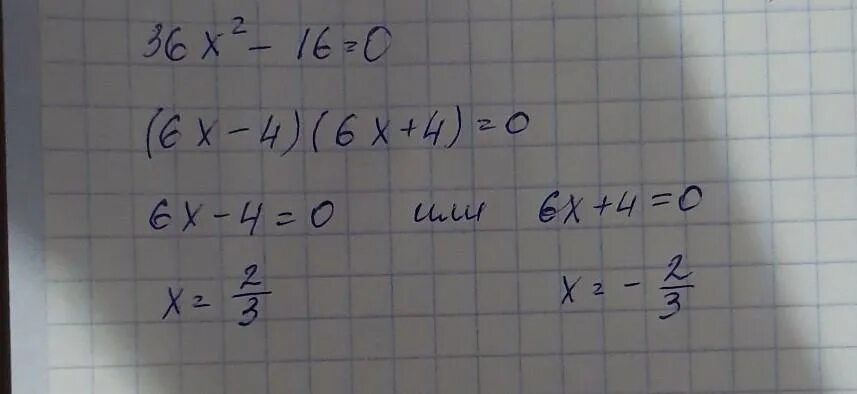 36x² - 16 = 0
(6x - 4)(6x + 4) = 0
6x - 4 = 0 или 6x + 4 = 0
x = 2/3 x = - 2/3